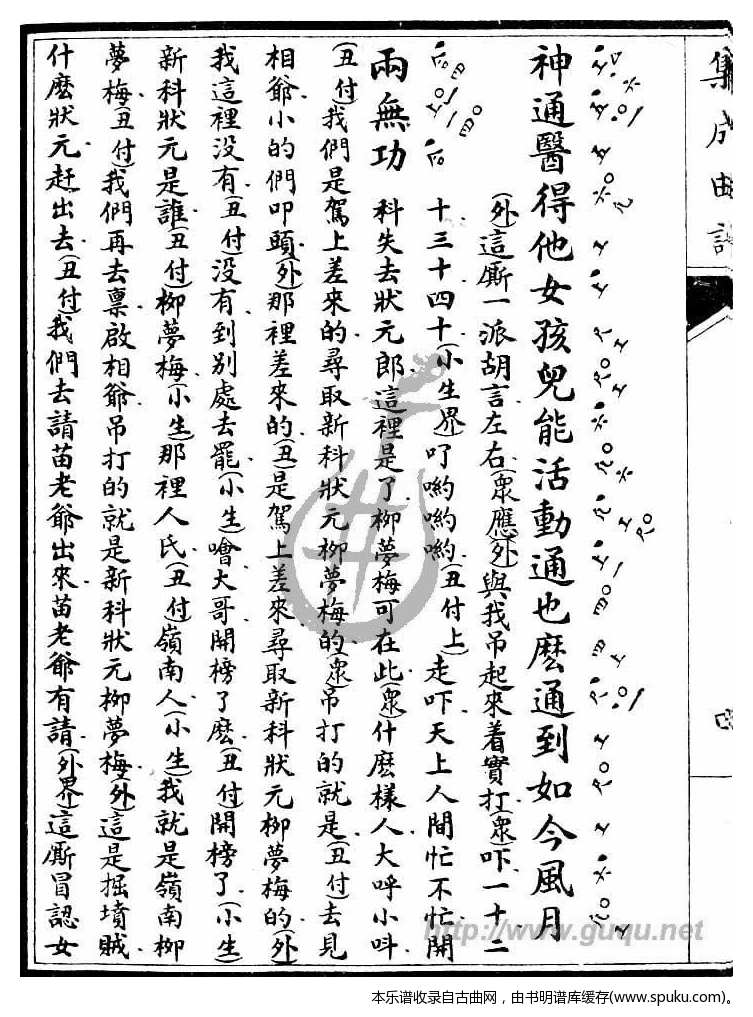 集成曲譜
神通醫得他女孩兒能活動通也麼通到如今風月
(外)這厮一派胡言左右(衆應)(外)與我吊起來着實打(衆)吓一十二
兩無功
十三十四十(小生界)叮喲喲喲(丑付上)走吓天上人間忙不忙開
科失去狀元郎這裡是了柳夢梅可在此(衆)什麽樣人大呼小呌
(丑付)我們是駕上差來的尋取新科狀元柳夢梅的(衆)吊打的就是(丑付)去見
相爺小的們叩頭(外)那裡差來的(丑)是駕上差來尋取新科狀元柳夢梅的(外)
我這裡没有(丑付)没有到别處去罷(小生)噲大哥開榜了麽(丑付)開榜了(小生)
新科狀元是誰(丑付)柳夢梅(小生)那裡人氏(丑付)嶺南人(小生)我就是嶺南柳
夢梅(丑付)我們再去禀啟相爺吊打的就是新科狀元柳夢梅(外)這是掘墳賊
什麽狀元赶出去(丑付)我們去請苗老爺出來苗老爺有請(外界)這厮冒認女
http://www.guqu.net
本乐谱收录自古曲网，由书明谱库缓存(www.spuku.com)。